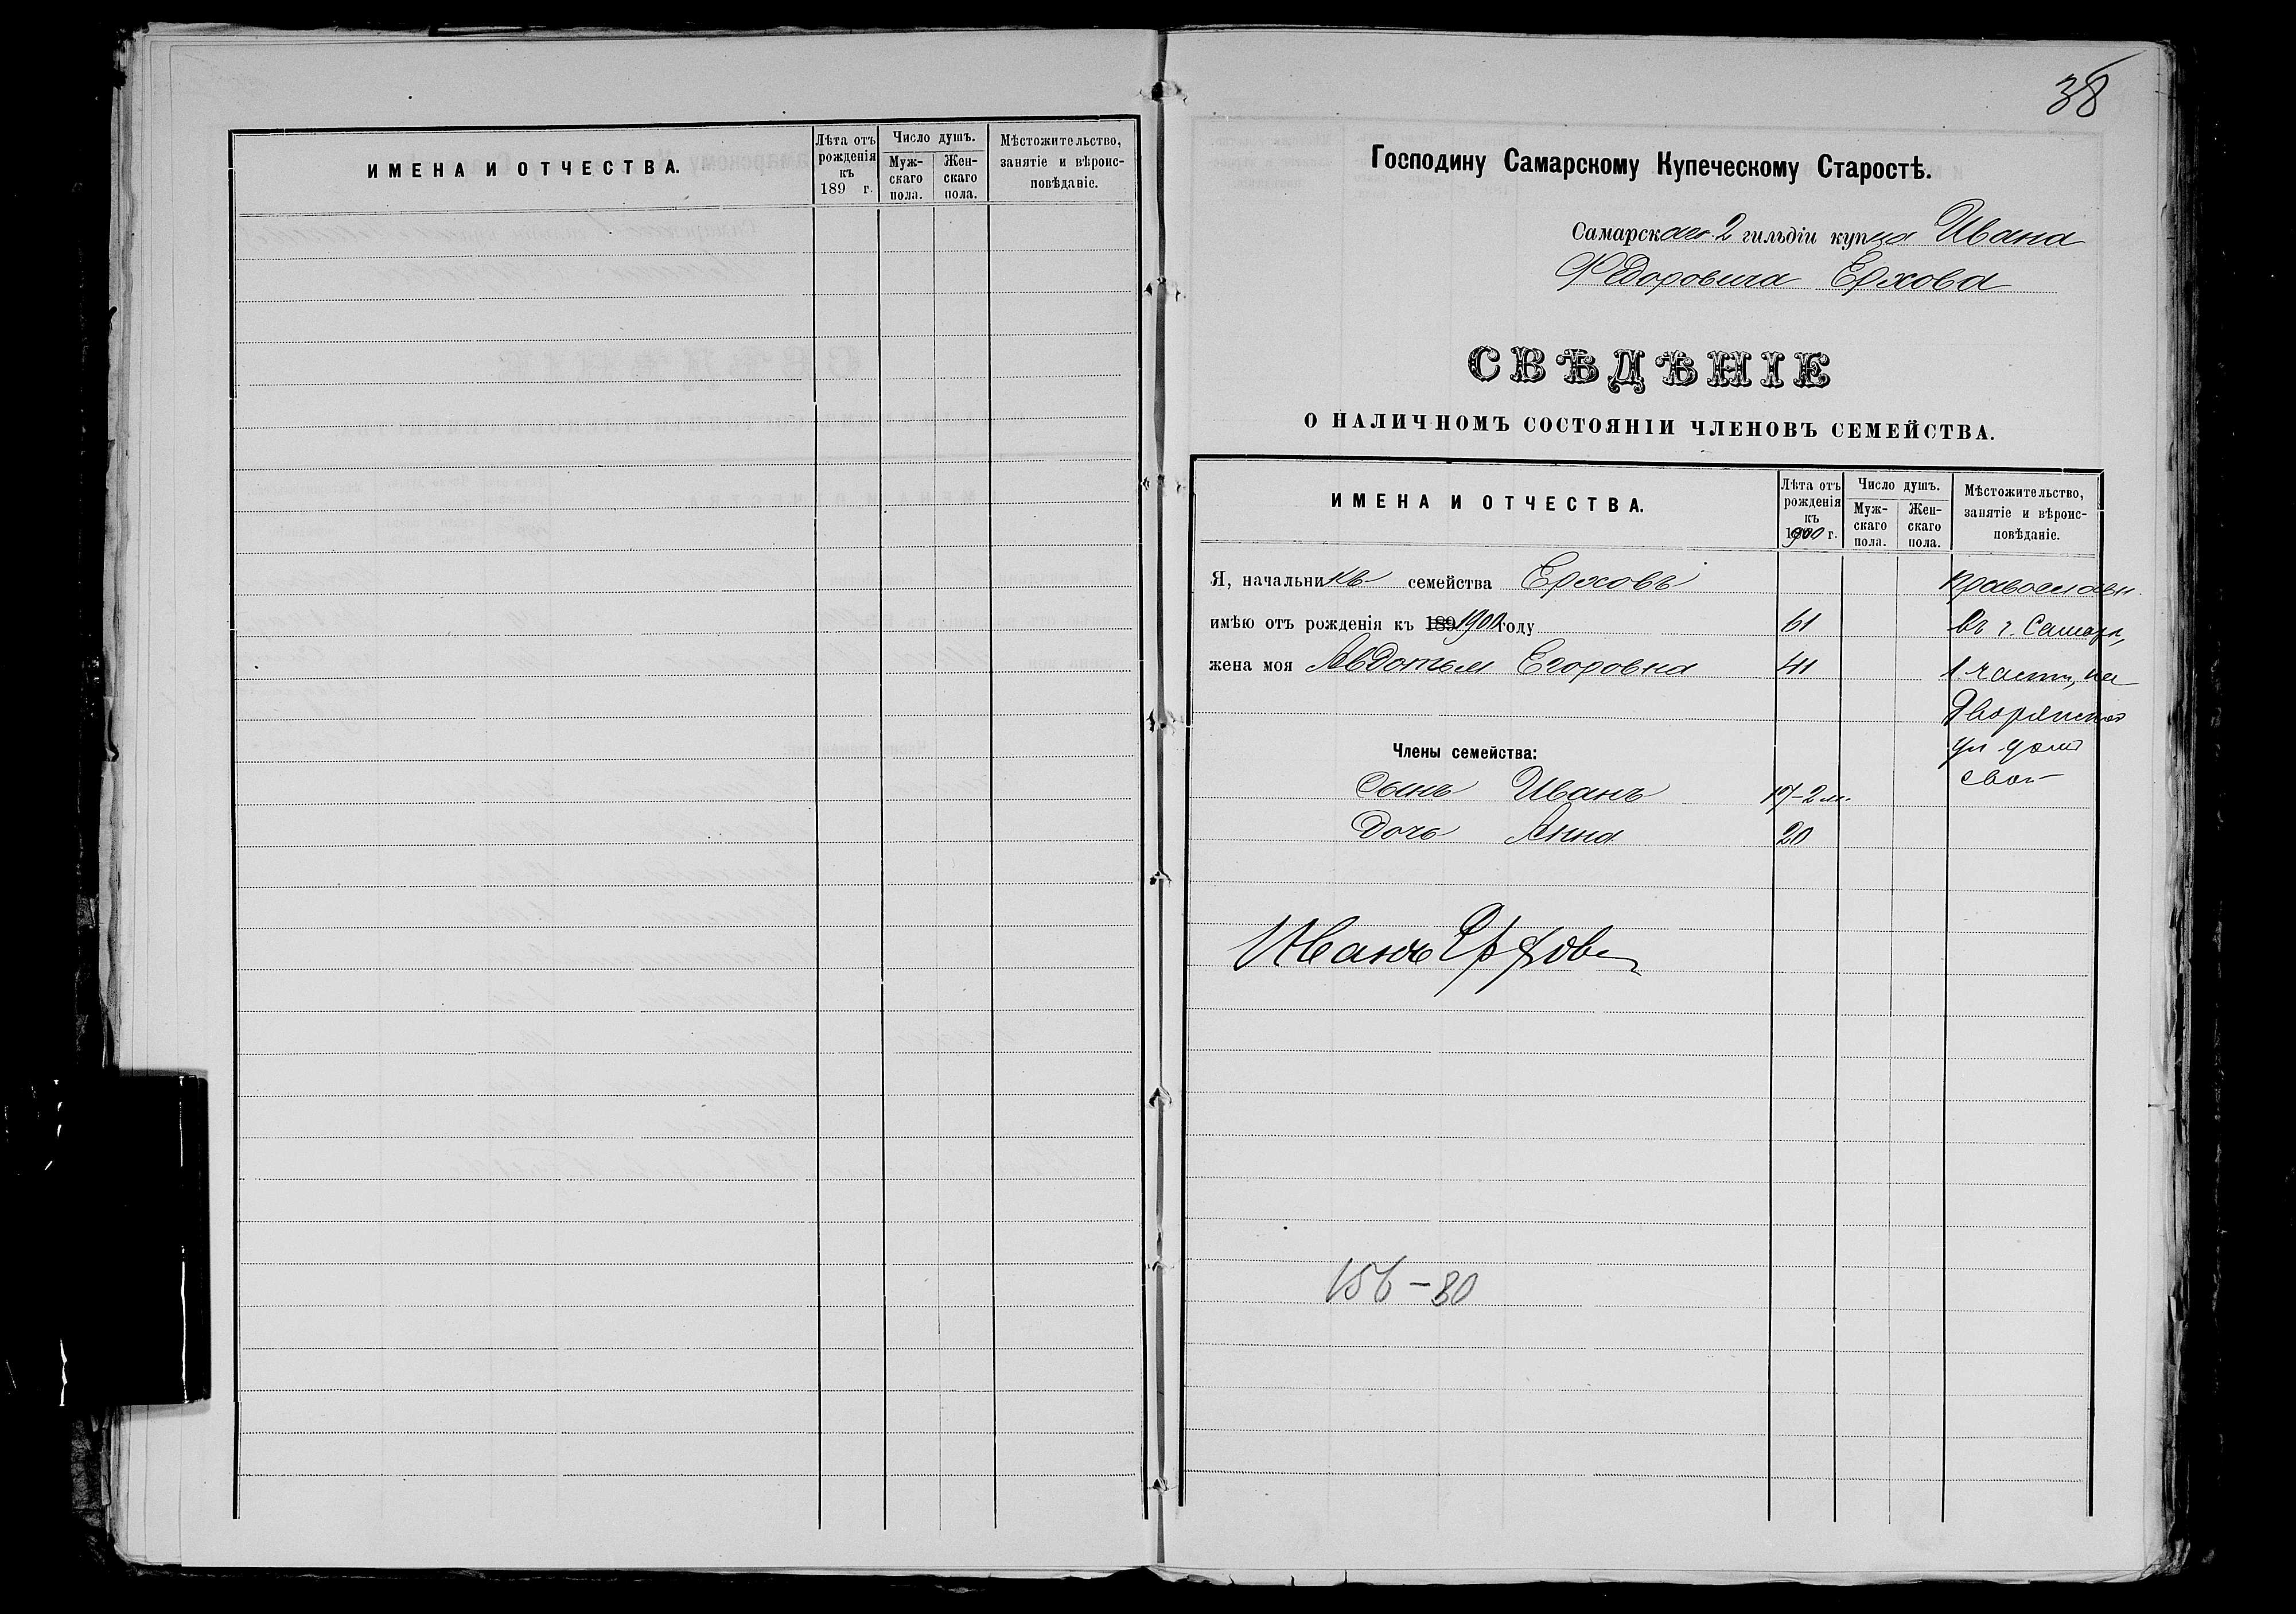 ИМЕНА И ОТЧЕСТВА.
Лѣта отъ рожденія къ 189 г.
Число душъ.
Муж-скаго пола.
Жен-скаго пола.
Мѣстожительство, занятіе и вѣроис-повѣданіе.
38
Господину Самарскому Купеческому Старостѣ.
Самарскаго 2 гильдіи купца Ивана
Федоровича Ерхова
СВѢДѢНІЕ
О НАЛИЧНОМЪ СОСТОЯНІИ ЧЛЕНОВЪ СЕМЕЙСТВА.
ИМЕНА И ОТЧЕСТВА.
Лѣта отъ рожденія къ 1900 г.
Число душъ.
Муж-скаго пола.
Жен-скаго пола.
Мѣстожительство, занятіе и вѣроис-повѣданіе.
Я, начальникъ семейства Ерховъ православн.
имѣю отъ рожденія къ 189 1900 году 61 Въ г. Самарѣ,
жена моя Авдотья Егоровна 41 1 части, на
Дворянской
Члены семейства: ул домъ
свой
Сынъ Иванъ 17-2 м.
Дочь Анна 20
Иванъ Ерховъ
156-80